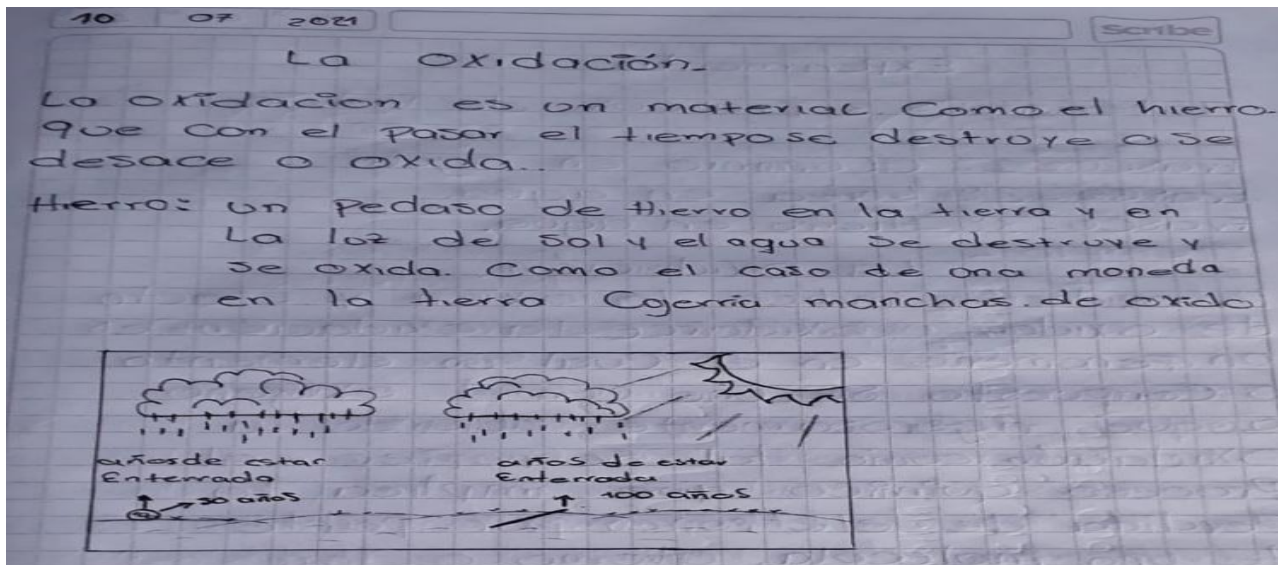 10 07 2021
Scribe
La Oxidación-
La oxidacion es un material Como el hierro
que con el pasar el tiempo se destroye o se
desace o oxida..
Hierro: un Pedaso de Hierro en la tierra y en
La luz de sol y el agua se destruye y
se oxida. Como el caso de una moneda
en la tierra Cogerria manchas. de oxido
años de estar
Enterrado
30 años
años de estar
Enterrada
100 años